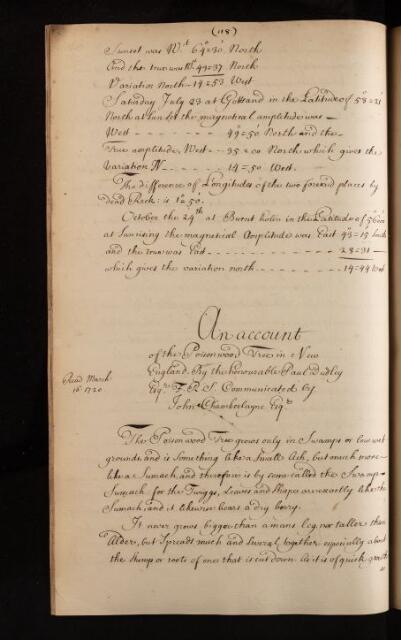 (118)
Sunset was Wst. 64=30 North
And the true was W. 49=37 North
Variation North - 14=53 West
Saturday July 23 at Gottland in the Latitude of 58=21
North at Sun set the magnetical amplitude was -
West - - - - - - - 49=50 North and the -
True amplitude West - - 35=00 North which gives the
Variation N - - - - - 14=50 West.
The difference of Longitudes of the two forsaid places by
dead Reck: is 1°50'.
October the 24th at Burnt holm in the Latitude of 56=00
at Sun rising the magnetical Amplitude was East 43=15 South
and the true was East - - - - - - - 28=31
which gives the variation north - - - - - - - 14=44 West
An account
of the Poison wood Tree in New
England. By the honourable Paul Dudley
Esqr. F.R.S. Communicated by
John Chamberlayne Esqr.
Read March
16 1720
The Poison wood Tree grows only in Swamps or low wet
grounds and is Something like a Small Ash, but much more
like a Sumach, and therefore is by some called the Swamp-
Sumach for the Twiggs, Leaves and Shape are exactly like the
Sumach, and it likewise bears a dry berry.
It never grows bigger than a mans leg, nor taller than
Alder, but Spreads much and Several together especially about
the Stump or roots of ones that is cut down. As it is of quick growth